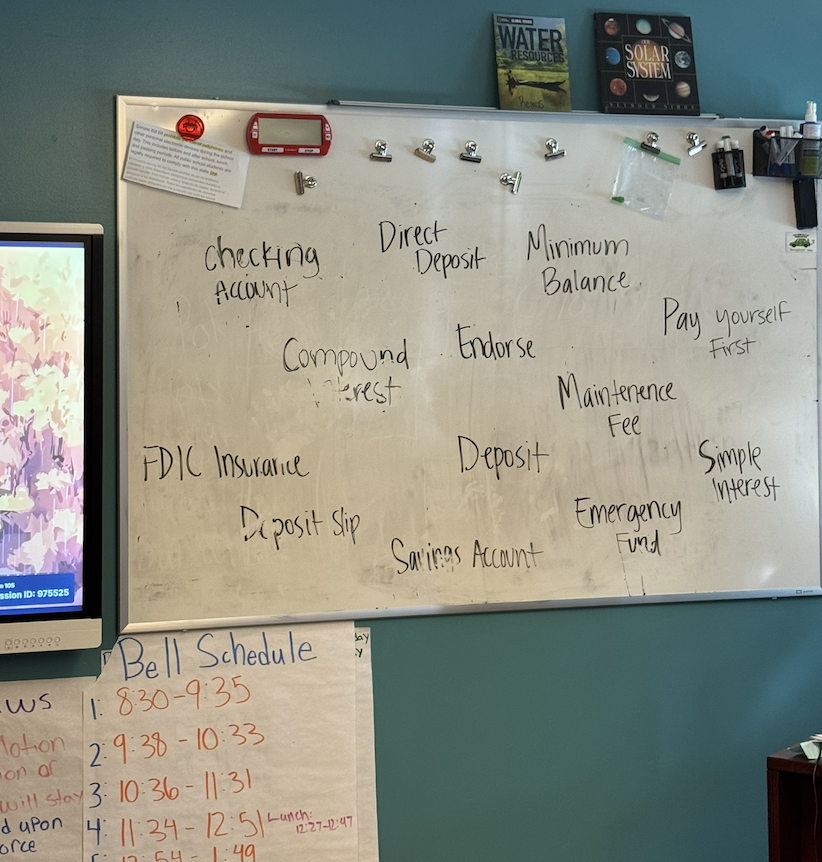 WATER
RESOURCES
SOLAR
SYSTEM
SEYMOUR SIMON
START
STOP
Checking
Account
Direct
Deposit
Minimum
Balance
Pay yourself
First
Compound
Endorse
Maintenence
Fee
FDIC Insurance
Deposit
Simple
Interest
Deposit Slip
Emergency
Fund
Savings Account
105
ssion ID: 975525
Bell Schedule
1: 8:30-9:35
2: 9:38 - 10:33
3: 10:36 - 11:31
4: 11:34 - 12:51 Lunch:
12:27-12:47
5: 12:54 - 1:49
ws
Motion
on of
will stay
d upon
orce